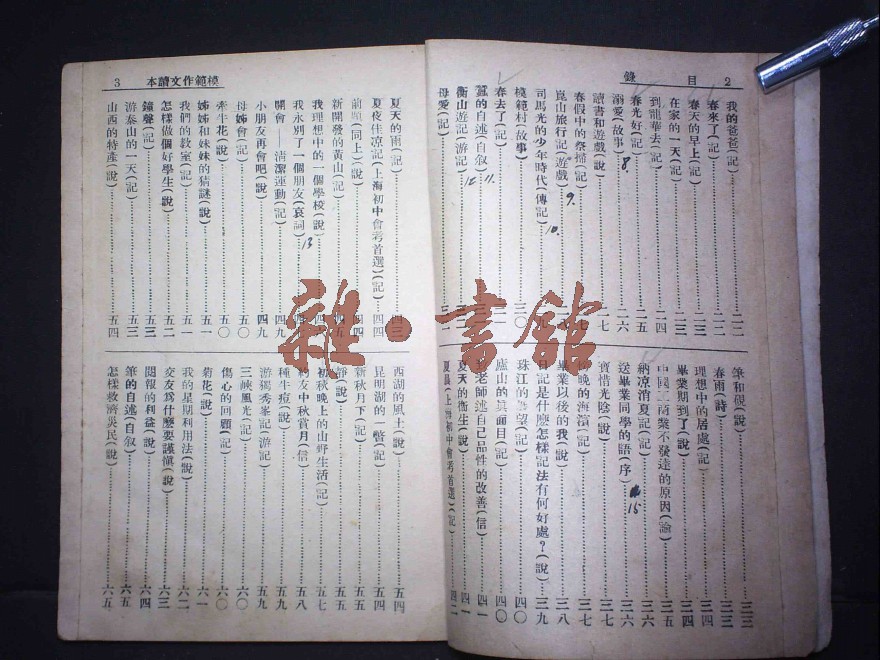 2 目錄
我的爸爸(記)……二二
春來了(記)……二二
春天的早上(記)……二三
在家的一天(記)……二三
到龍華去(記)……二四
春光好(記)……二五
溺愛(故事)……二六
8.
讀書和遊戲(說)……二七
春假中的祭掃(記)……二七
崑山旅行記(遊戲)
9.
司馬光的少年時代(傳記)
10.
模範村(故事)……三〇
春去了(記)
蠶的自述(自叙)
11.
衡山遊記(游記)
12
母愛(記)
筆和硯(說)……三三
春雨(詩)……三三
理想中的居處(記)……三四
畢業期到了(說)……三四
中國工商業不發達的原因(論)……三五
納凉消夏記(記)……三六
送畢業同學的語(序)……三六
15
寶惜光陰(說)……三七
晚的海濱(記)……三七
畢業以後的我(說)……三八
日記是什麼怎樣記法有何好處?(說)……三九
珠江的望(記)……四〇
廬山的眞面目(記)……四〇
老師述自己品性的改善(信)……四一
夏天的衞生(說)……四一
夏(上海初中會考首選)(記)……四二
模範作文讀本 3
夏天的雨(記)……四三
夏夜佳凉記(上海初中會考首選)(記)……四四
前題(同上)(說)……四四
新開發的黃山(記)……四五
我理想中的一個學校(說)
我永別了一個朋友(哀詞)
13
開會——清潔運動(記)……四九
小朋友再會吧(說)……四九
母姊會(記)……五〇
牽牛花(說)……五〇
姊姊和妹妹的猜謎(說)……五一
我們的教室(記)……五一
怎樣做個好學生(說)……五二
鐘聲(記)……五三
游泰山的一天(記)……五三
山西的特產(說)……五四
西湖的風土(說)……五四
昆明湖的一瞥(記)……五四
新秋月下(記)……五五
靜(說)……五五
初秋晚上的山野生活(記)……五七
約友中秋賞月(信)……五八
種牛痘(說)……五九
游獨秀峯記(游記)……五九
三峽風光(記)……六〇
傷心的回顧(記)……六〇
菊花(說)……六一
我的星期利用法(說)……六二
交友爲什麼要謹愼(說)……六三
閱報的利益(說)……六四
筆的自述(自叙)……六五
怎樣救濟災民(說)……六五
雜·書館